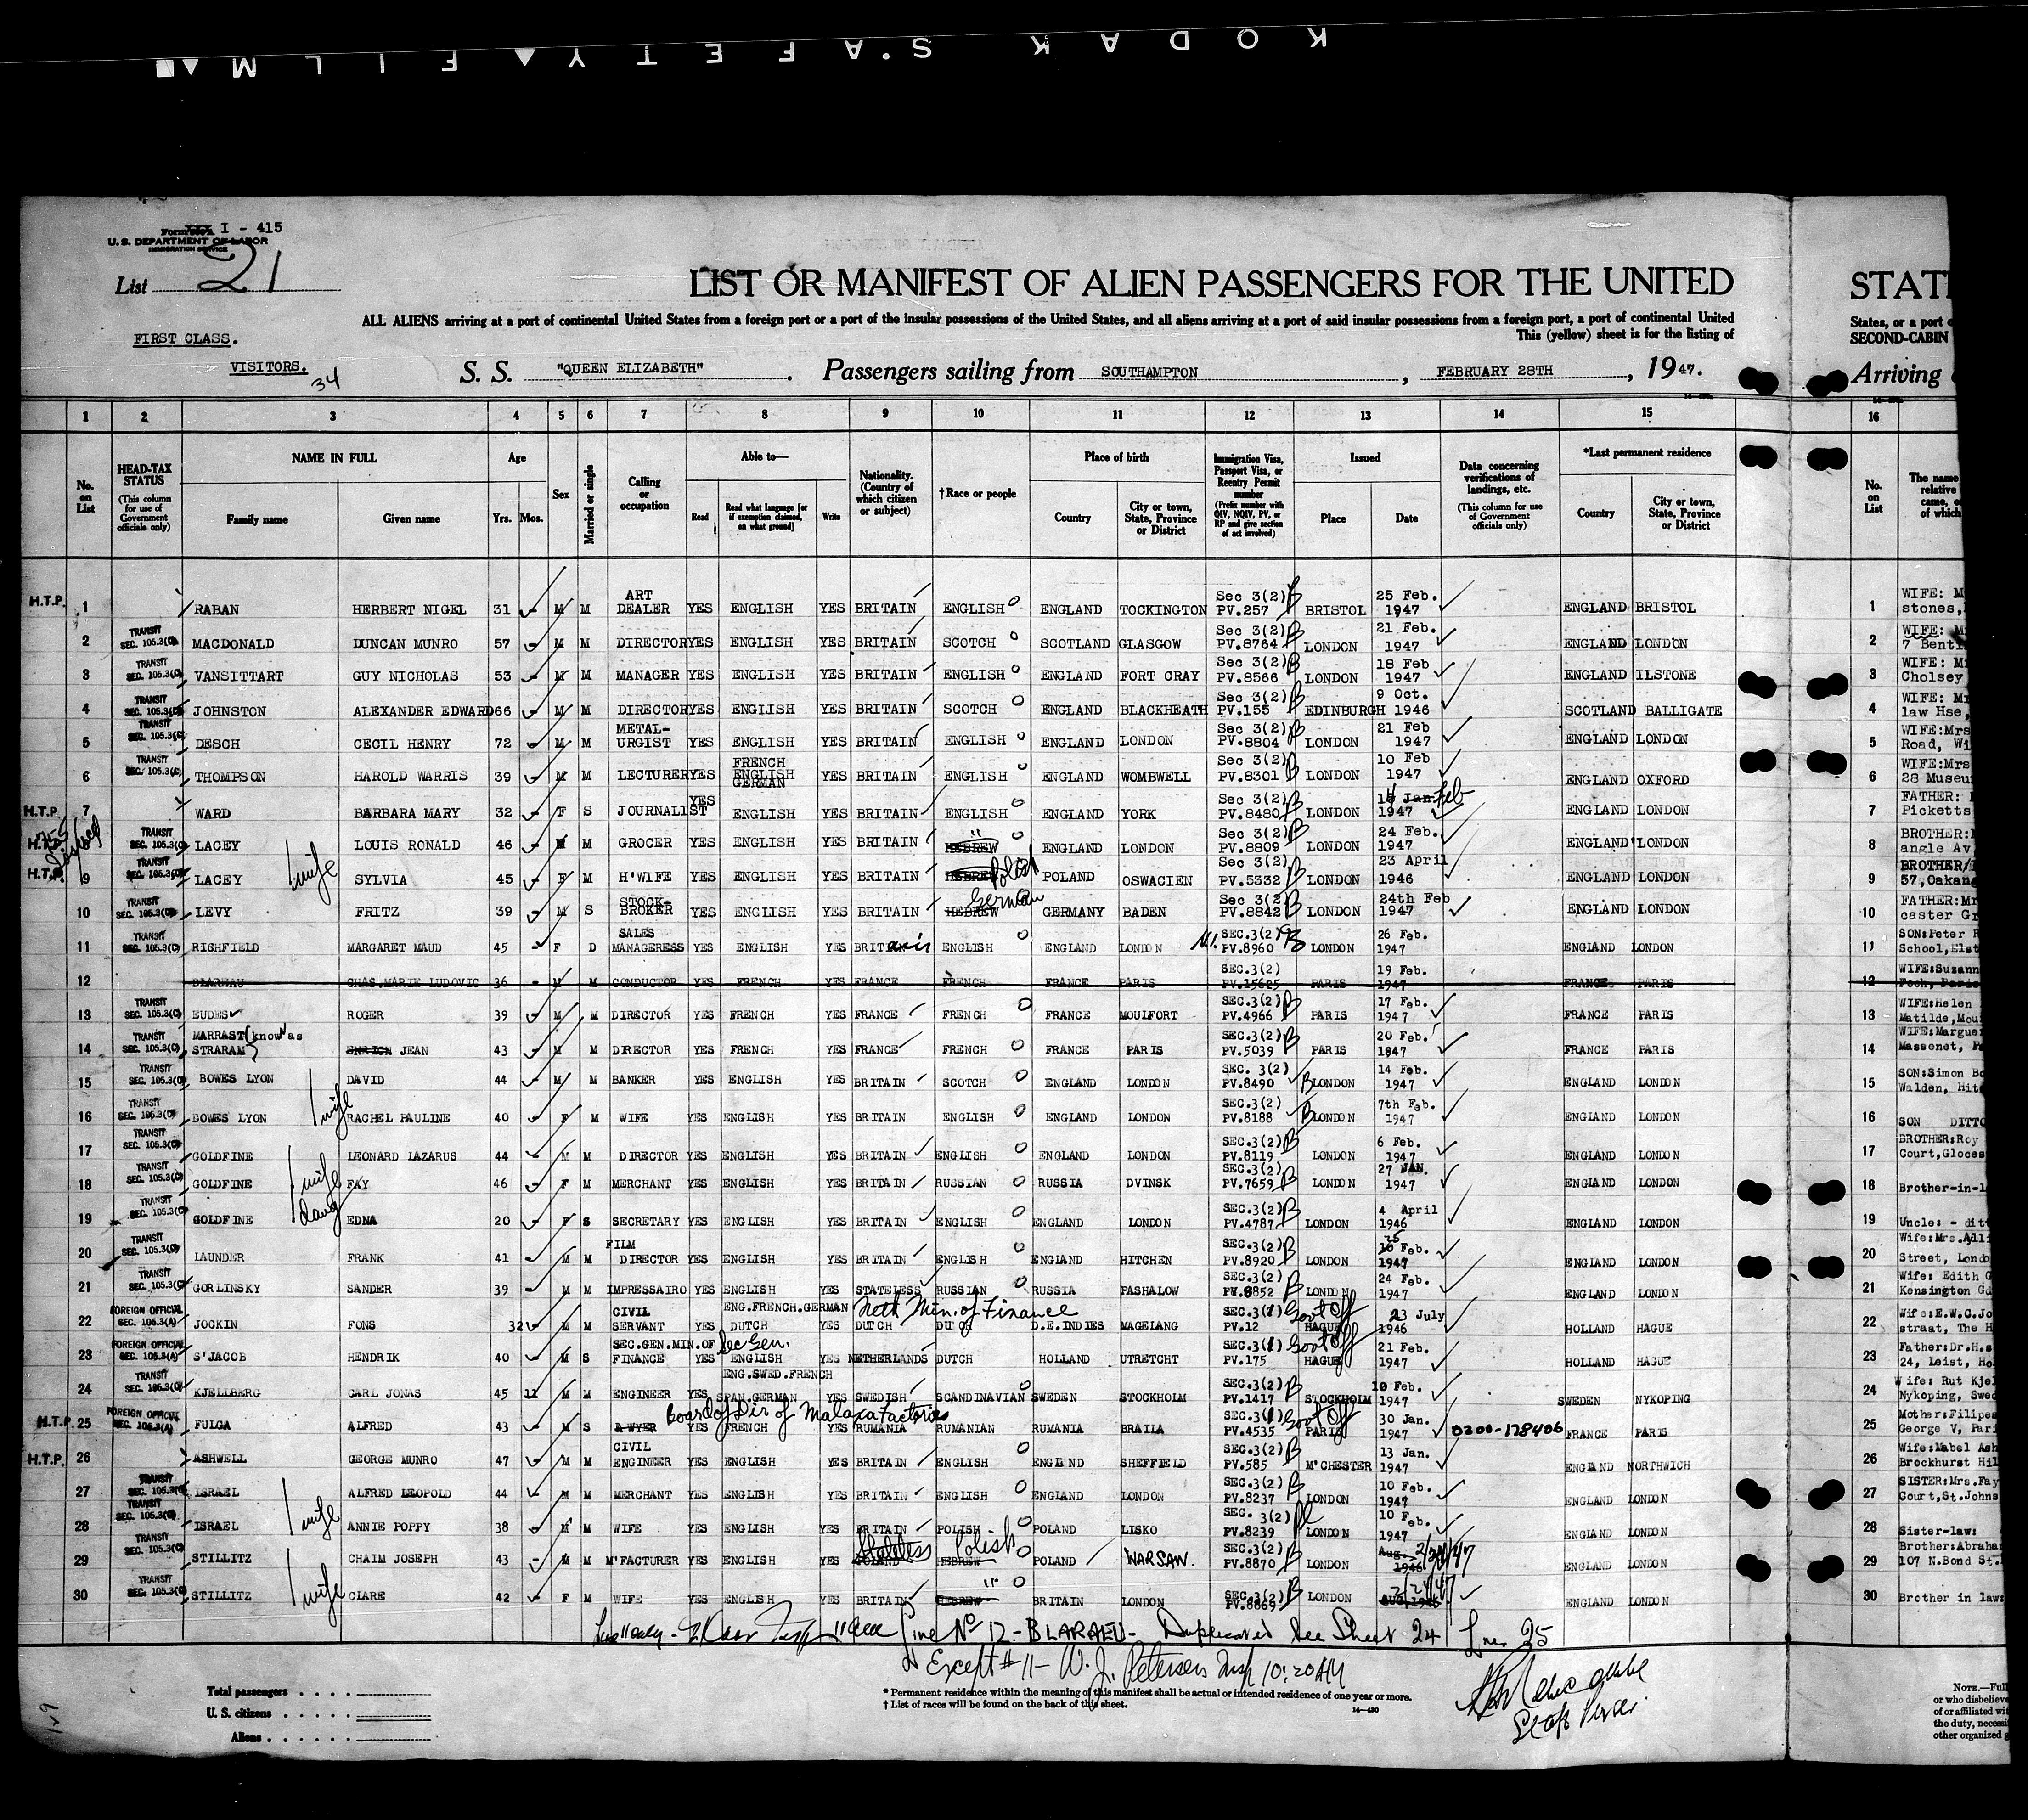 KODAK SAFETY FILM
Form I - 415
U. S. DEPARTMENT OF LABOR
IMMIGRATION SERVICE
List 21
LIST OR MANIFEST OF ALIEN PASSENGERS FOR THE UNITED
STATE
ALL ALIENS arriving at a port of continental United States from a foreign port or a port of the insular possessions of the United States, and all aliens arriving at a port of said insular possessions from a foreign port, a port of continental United
States, or a port
FIRST CLASS.
This (yellow) sheet is for the listing of
SECOND-CABIN
VISITORS. 34
S. S. "QUEEN ELIZABETH". Passengers sailing from SOUTHAMPTON, FEBRUARY 28TH, 1947.
Arriving
1 2 3 4 5 6 7 8 9 10 11 12 13 14 15 16
No. on List
HEAD-TAX STATUS (This column for use of Government officials only)
NAME IN FULL Family name Given name
Age Yrs. Mos.
Sex
Married or single
Calling or occupation
Able to— Read Read what language [or if exemption claimed, on what ground] Write
Nationality. (Country of which citizen or subject)
†Race or people
Place of birth Country City or town, State, Province or District
Immigration Visa, Passport Visa, or Reentry Permit number (Prefix number with QIV, NQIV, PV, or RP and give section of act involved)
Issued Place Date
Data concerning verifications of landings, etc. (This column for use of Government officials only)
*Last permanent residence Country City or town, State, Province or District
No. on List
The name relative came, of which
H.T.P. 1 RABAN HERBERT NIGEL 31 M M ART DEALER YES ENGLISH YES BRITAIN ENGLISH ENGLAND TOCKINGTON Sec 3(2) PV.257 BRISTOL 25 Feb. 1947 ENGLAND BRISTOL 1 WIFE: M stones,
2 TRANSIT SEC. 105.3(C) MACDONALD DUNCAN MUNRO 57 M M DIRECTOR YES ENGLISH YES BRITAIN SCOTCH SCOTLAND GLASGOW Sec 3(2) PV.8764 LONDON 21 Feb. 1947 ENGLAND LONDON 2 WIFE: M 7 Benti
3 TRANSIT SEC. 105.3(C) VANSITTART GUY NICHOLAS 53 M M MANAGER YES ENGLISH YES BRITAIN ENGLISH ENGLAND FORT CRAY Sec 3(2) PV.8566 LONDON 18 Feb 1947 ENGLAND ILSTONE 3 WIFE: M Cholsey
4 TRANSIT SEC. 105.3(C) JOHNSTON ALEXANDER EDWARD 66 M M DIRECTOR YES ENGLISH YES BRITAIN SCOTCH ENGLAND BLACKHEATH Sec 3(2) PV.155 EDINBURGH 9 Oct. 1946 SCOTLAND BALLIGATE 4 WIFE: M law Hse,
5 TRANSIT SEC. 105.3(C) DESCH CECIL HENRY 72 M M METAL-URGIST YES ENGLISH YES BRITAIN ENGLISH ENGLAND LONDON Sec 3(2) PV.8804 LONDON 21 Feb 1947 ENGLAND LONDON 5 WIFE:Mrs Road, Wi
6 TRANSIT SEC. 105.3(C) THOMPSON HAROLD WARRIS 39 M M LECTURER YES FRENCH ENGLISH GERMAN YES BRITAIN ENGLISH ENGLAND WOMBWELL Sec 3(2) PV.8301 LONDON 10 Feb 1947 ENGLAND OXFORD 6 WIFE:Mrs 28 Museu
H.T.P. 7 WARD BARBARA MARY 32 F S JOURNALIST YES ENGLISH YES BRITAIN ENGLISH ENGLAND YORK Sec 3(2) PV.8480 LONDON Jan Feb 1947 ENGLAND LONDON 7 FATHER: Picketts
H.T.P. 8 TRANSIT SEC. 105.3(C) LACEY LOUIS RONALD 46 M M GROCER YES ENGLISH YES BRITAIN HEBREW " ENGLAND LONDON Sec 3(2) PV.8809 LONDON 24 Feb. 1947 ENGLAND LONDON 8 BROTHER: angle Av
H.T.P. 9 TRANSIT SEC. 105.3(C) LACEY wife SYLVIA 45 F M H'WIFE YES ENGLISH YES BRITAIN HEBREW Polish POLAND OSWACIEN Sec 3(2) PV.5332 LONDON 23 April 1946 ENGLAND LONDON 9 BROTHER 57,Oakan
10 TRANSIT SEC. 105.3(C) LEVY FRITZ 39 M S STOCK-BROKER YES ENGLISH YES BRITAIN HEBREW German GERMANY BADEN Sec 3(2) PV.8842 LONDON 24th Feb 1947 ENGLAND LONDON 10 FATHER:Mr caster Gr
11 TRANSIT SEC. 105.3(C) RICHFIELD MARGARET MAUD 45 F D SALES MANAGERESS YES ENGLISH YES BRITain ENGLISH ENGLAND LONDON SEC.3(2) PV.8960 LONDON 26 Feb. 1947 ENGLAND LONDON 11 SON:Peter R School,Elst
12 BLAREAU CHAS.MARIE LUDOVIC 36 M M CONDUCTOR YES FRENCH YES FRANCE FRENCH FRANCE PARIS SEC.3(2) PV.15625 PARIS 19 Feb. 1947 FRANCE PARIS 12 WIFE:Suzann Foch, Paris
13 TRANSIT SEC. 105.3(C) EUDES ROGER 39 M M DIRECTOR YES FRENCH YES FRANCE FRENCH FRANCE MOULFORT SEC.3(2) PV.4966 PARIS 17 Feb. 1947 FRANCE PARIS 13 WIFE:Helen Matilde,Mou
14 TRANSIT SEC. 105.3(C) MARRAST (known as STRARAM) ENRICH JEAN 43 M M DIRECTOR YES FRENCH YES FRANCE FRENCH FRANCE PARIS SEC.3(2) PV.5039 PARIS 20 Feb. 1947 FRANCE PARIS 14 WIFE:Margue Massenet, P
15 TRANSIT SEC. 105.3(C) BOWES LYON DAVID 44 M M BANKER YES ENGLISH YES BRITAIN SCOTCH ENGLAND LONDON SEC. 3(2) PV.8490 LONDON 14 Feb. 1947 ENGLAND LONDON 15 SON:Simon Bo Walden, Hit
16 TRANSIT SEC. 105.3(C) BOWES LYON wife RACHEL PAULINE 40 F M WIFE YES ENGLISH YES BRITAIN ENGLISH ENGLAND LONDON SEC.3(2) PV.8188 LONDON 7th Feb. 1947 ENGLAND LONDON 16 SON DITTO
17 TRANSIT SEC. 105.3(C) GOLDFINE LEONARD LAZARUS 44 M M DIRECTOR YES ENGLISH YES BRITAIN ENGLISH ENGLAND LONDON SEC.3(2) PV.8119 LONDON 6 Feb. 1947 ENGLAND LONDON 17 BROTHER:Roy Court,Gloces
18 TRANSIT SEC. 105.3(C) GOLDFINE wife FAY 46 F M MERCHANT YES ENGLISH YES BRITAIN RUSSIAN RUSSIA DVINSK SEC.3(2) PV.7659 LONDON 27 JAN. 1947 ENGLAND LONDON 18 Brother-in-l
19 TRANSIT SEC. 105.3(C) GOLDFINE daug EDNA 20 F S SECRETARY YES ENGLISH YES BRITAIN ENGLISH ENGLAND LONDON SEC.3(2) PV.4787 LONDON 4 April 1946 ENGLAND LONDON 19 Uncle: - ditt
20 TRANSIT SEC. 105.3(C) LAUNDER FRANK 41 M M FILM DIRECTOR YES ENGLISH YES BRITAIN ENGLISH ENGLAND HITCHEN SEC.3(2) PV.8920 LONDON Feb. 1947 ENGLAND LONDON 20 Wife:Mrs.Alli Street, Londo
21 TRANSIT SEC. 105.3(C) GORLINSKY SANDER 39 M M IMPRESSAIRO YES ENGLISH YES STATELESS RUSSIAN RUSSIA PASHALOW SEC.3(2) PV.8852 LONDON 24 Feb. 1947 ENGLAND LONDON 21 Wife: Edith G Kensington Gd
22 FOREIGN OFFICIAL SEC. 105.3(A) JOCKIN FONS 32 M M CIVIL SERVANT YES ENG.FRENCH.GERMAN DUTCH YES DUTCH DUTCH Neth Min. of Finance D.E.INDIES MAGELANG SEC.3(1) Govt Off PV.12 HAGUE 23 July 1946 HOLLAND HAGUE 22 Wife:E.W.C.Jo straat, The H
23 FOREIGN OFFICIAL SEC. 105.3(A) S'JACOB HENDRIK 40 M S SEC.GEN.MIN.OF FINANCE Sec Gen. YES ENGLISH YES NETHERLANDS DUTCH HOLLAND UTRETCHT SEC.3(1) Govt Off PV.175 HAGUE 21 Feb. 1947 HOLLAND HAGUE 23 Father:Dr.H.s 24, Leist, Ho
24 TRANSIT SEC. 105.3(C) KJELLBERG CARL JONAS 45 11 M M ENGINEER YES ENG.SWED.FRENCH SPAN.GERMAN YES SWEDISH SCANDINAVIAN SWEDEN STOCKHOLM SEC.3(2) PV.1417 STOCKHOLM 10 Feb. 1947 SWEDEN NYKOPING 24 Wife: Rut Kjel Nykoping, Swed
H.T.P. 25 FOREIGN OFFICIAL SEC. 105.3(A) FULGA ALFRED 43 M S LAWYER Board of Dir of Malaxa Factories YES FRENCH YES RUMANIA RUMANIAN RUMANIA BRAILA SEC.3(1) Govt Off PV.4535 PARIS 30 Jan. 1947 0300-178406 FRANCE PARIS 25 Mother:Filipes George V, Pari
H.T.P. 26 ASHWELL GEORGE MUNRO 47 M M CIVIL ENGINEER YES ENGLISH YES BRITAIN ENGLISH ENGLAND SHEFFIELD SEC.3(2) PV.585 M'CHESTER 13 Jan. 1947 ENGLAND NORTHWICH 26 Wife:Mabel Ash Brockhurst Hil
27 TRANSIT SEC. 105.3(C) ISRAEL ALFRED LEOPOLD 44 M M MERCHANT YES ENGLISH YES BRITAIN ENGLISH ENGLAND LONDON SEC.3(2) PV.8237 LONDON 10 Feb. 1947 ENGLAND LONDON 27 SISTER:Mrs.Fay Court,St.Johns
28 TRANSIT SEC. 105.3(C) ISRAEL wife ANNIE POPPY 38 M M WIFE YES ENGLISH YES BRITAIN POLISH POLAND LISKO SEC. 3(2) PV.8239 LONDON 10 Feb. 1947 ENGLAND LONDON 28 Sister-law:
29 TRANSIT SEC. 105.3(C) STILLITZ CHAIM JOSEPH 43 M M M'FACTURER YES ENGLISH YES POLAND Stateless HEBREW Polish POLAND WARSAW. SEC.3(2) PV.8870 LONDON Aug. 1946 ENGLAND LONDON 29 Brother:Abraha 107 N.Bond St.
30 TRANSIT SEC. 105.3(C) STILLITZ wife CLARE 42 F M WIFE YES ENGLISH YES BRITAIN HEBREW " BRITAIN LONDON SEC.3(2) PV.8869 LONDON AUG.1946 2/24/47 ENGLAND LONDON 30 Brother in law:
Line No 12 - BLARAEU - Duplicated See Sheet 24 Line 25
Except #11 - W. J. Petersen Insp 10:20 AM
Total passengers
U. S. citizens
Aliens
* Permanent residence within the meaning of this manifest shall be actual or intended residence of one year or more.
† List of races will be found on the back of this sheet.
NOTE.—Full
or who disbelieve
of or affiliated wi
the duty, necessi
other organized g